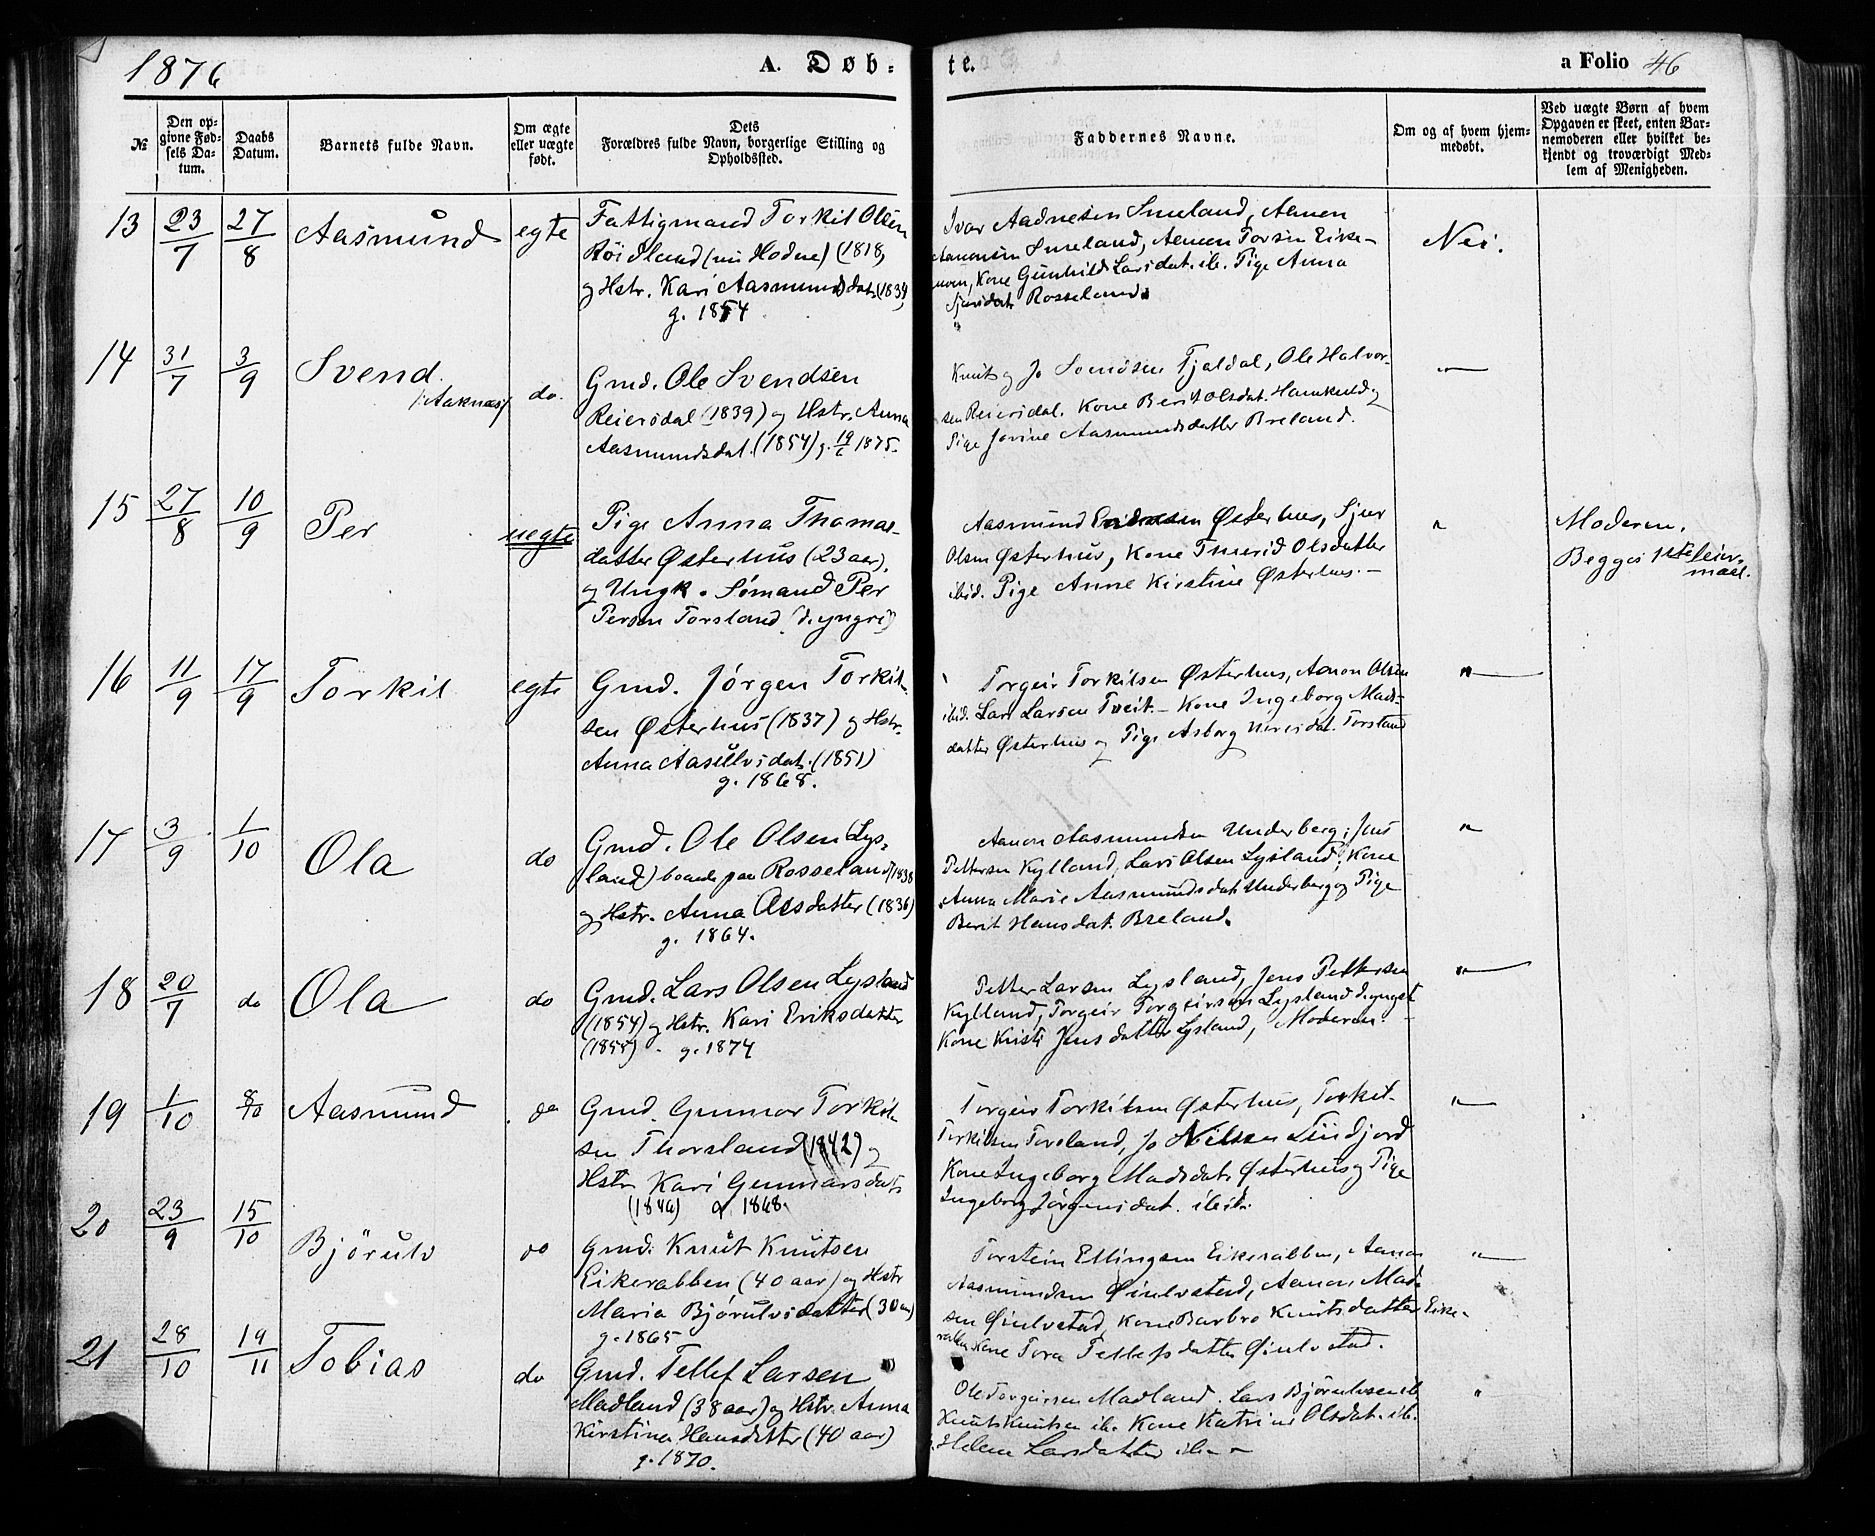 1876
A. Døb-
te.
a Folio 46
№
Den op-
givne Fød-
sels Da-
tum.
Daabs
Datum.
Barnets fulde Navn.
Om ægte
eller uægte
født.
Dets
Forældres fulde Navn, borgerlige Stilling og
Opholdssted.
Faddernes Navne.
Om og af hvem hjem-
medøbt.
Ved uægte Børn af hvem
Opgaven er skeet, enten Bar-
nemoderen eller hvilket be-
kjendt og troværdigt Med-
lem af Menigheden.
13
23/7
27/8
Aasmund
egte
Fattigmand Torkil Olsen
Röidland (nu Hodne) (1818,
og Hstr. Kari Aasmundsdat. (1834
g. 1854
Ivar Aadnesen Smeland, Aanen
Aanensen Smeland, Aanen Torsen Eike-
moen, Kone Gunhild Larsdat. ib. Pige Anna
Sjursdat. Rosseland
Nei.
14
31/7
3/9
Svend
/:Aaknas/
do.
Gmd. Ole Svendsen
Reiersdal (1839) og Hstr. Anna
Aasmundsdat. (1854) g. 19/6 1875.
Knut og Jo Svendsen Tjaldal, Ole Halvor-
sen Reiersdal. Kone Berit Olsdat. Homkuld og
Pige Jorine Aasmundsdatter Breland.
"
15
27/8
10/9
Per
uegte
Pige Anna Thomas-
datter Østerhus (23 aar).
og Ungk. Sømand Per
Persen Torsland (d. yngre)
Aasmund Østerhus, Sjur
Olsen Østerhus, Kone Thurid Olsdatter
ibid. Pige Anne Kirstine Østerhus.
"
Moderen.
Begges 1ste leier-
maal.
16
11/9
17/9
Torkil
egte
Gmd. Jörgen Torkil-
sen Østerhus (1837) og Hstr.
Anna Aasulvsdat. (1851)
g. 1868.
Torgeir Torkilsen Østerhus, Aanon Olsen
ibid. Lars Larsen Tveit. Kone Ingeborg Mads-
datter Østerhus og Pige Asborg Torsland
"
17
3/9
1/10
Ola
do
Gmd. Ole Olsen (Lys-
land) boende paa Rosseland (1838
og Hstr. Anna Olsdatter (1836)
g. 1864.
Aanon Aasmundsen Underberg, Jens
Pettersen Kylland, Lars Olsen Lysland, Kone
Anna Marie Aasmundsdat. Underberg og Pige
Berit Hansdat. Breland.
"
18
20/7
do
Ola
do
Gmd. Lars Olsen Lysland
(1854) og Hstr. Kari Eriksdatter
(1855) g. 1874
Petter Larsen Lysland, Jens Pettersen
Kylland, Torgeir Torgeirsen Lysland d. yngst
Kone Kristi Jensdatter Lysland, Moderen.
"
19
1/10
8/10
Aasmund
do
Gmd. Gunnar Torkil-
sen Thorsland (1842) og
Hstr Kari Gunnarsdat.
(1846) g. 1868.
Torgeir Torkilsen Østerhus, Torkil
Torkilsen Torsland, Jo Nilsen Lindjord
Kone Ingeborg Madsdat. Østerhus og Pige
Ingeborg Jörgensdat. ibid.
"
20
23/9
15/10
Björulv
do
Gmd. Knut Knutsen
Eikerabben (40 aar) og Hstr
Maria Björulvsdatter (30 aar)
g. 1865
Torstein Ellingsen Eikerabben, Aanon
Aasmundsen Øiulvstad, Aanon Mad-
sen Øiulvstad, Kone Barbro Knutsdatter Eike-
rabben Kone Tora Tellefsdatter Øiulvstad.
"
21
28/10
19/11
Tobias
do
Gmd. Tellef Larsen
Madland (38 aar) og Hstr. Anna
Kirstine Hansdatter (40 aar)
g. 1870.
Ole Torgeirsen Madland. Lars Björulvsen ib.
Knut Knutsen ib. Kone Katrine Olsdat. ib.
Helene Larsdatter ib.
"